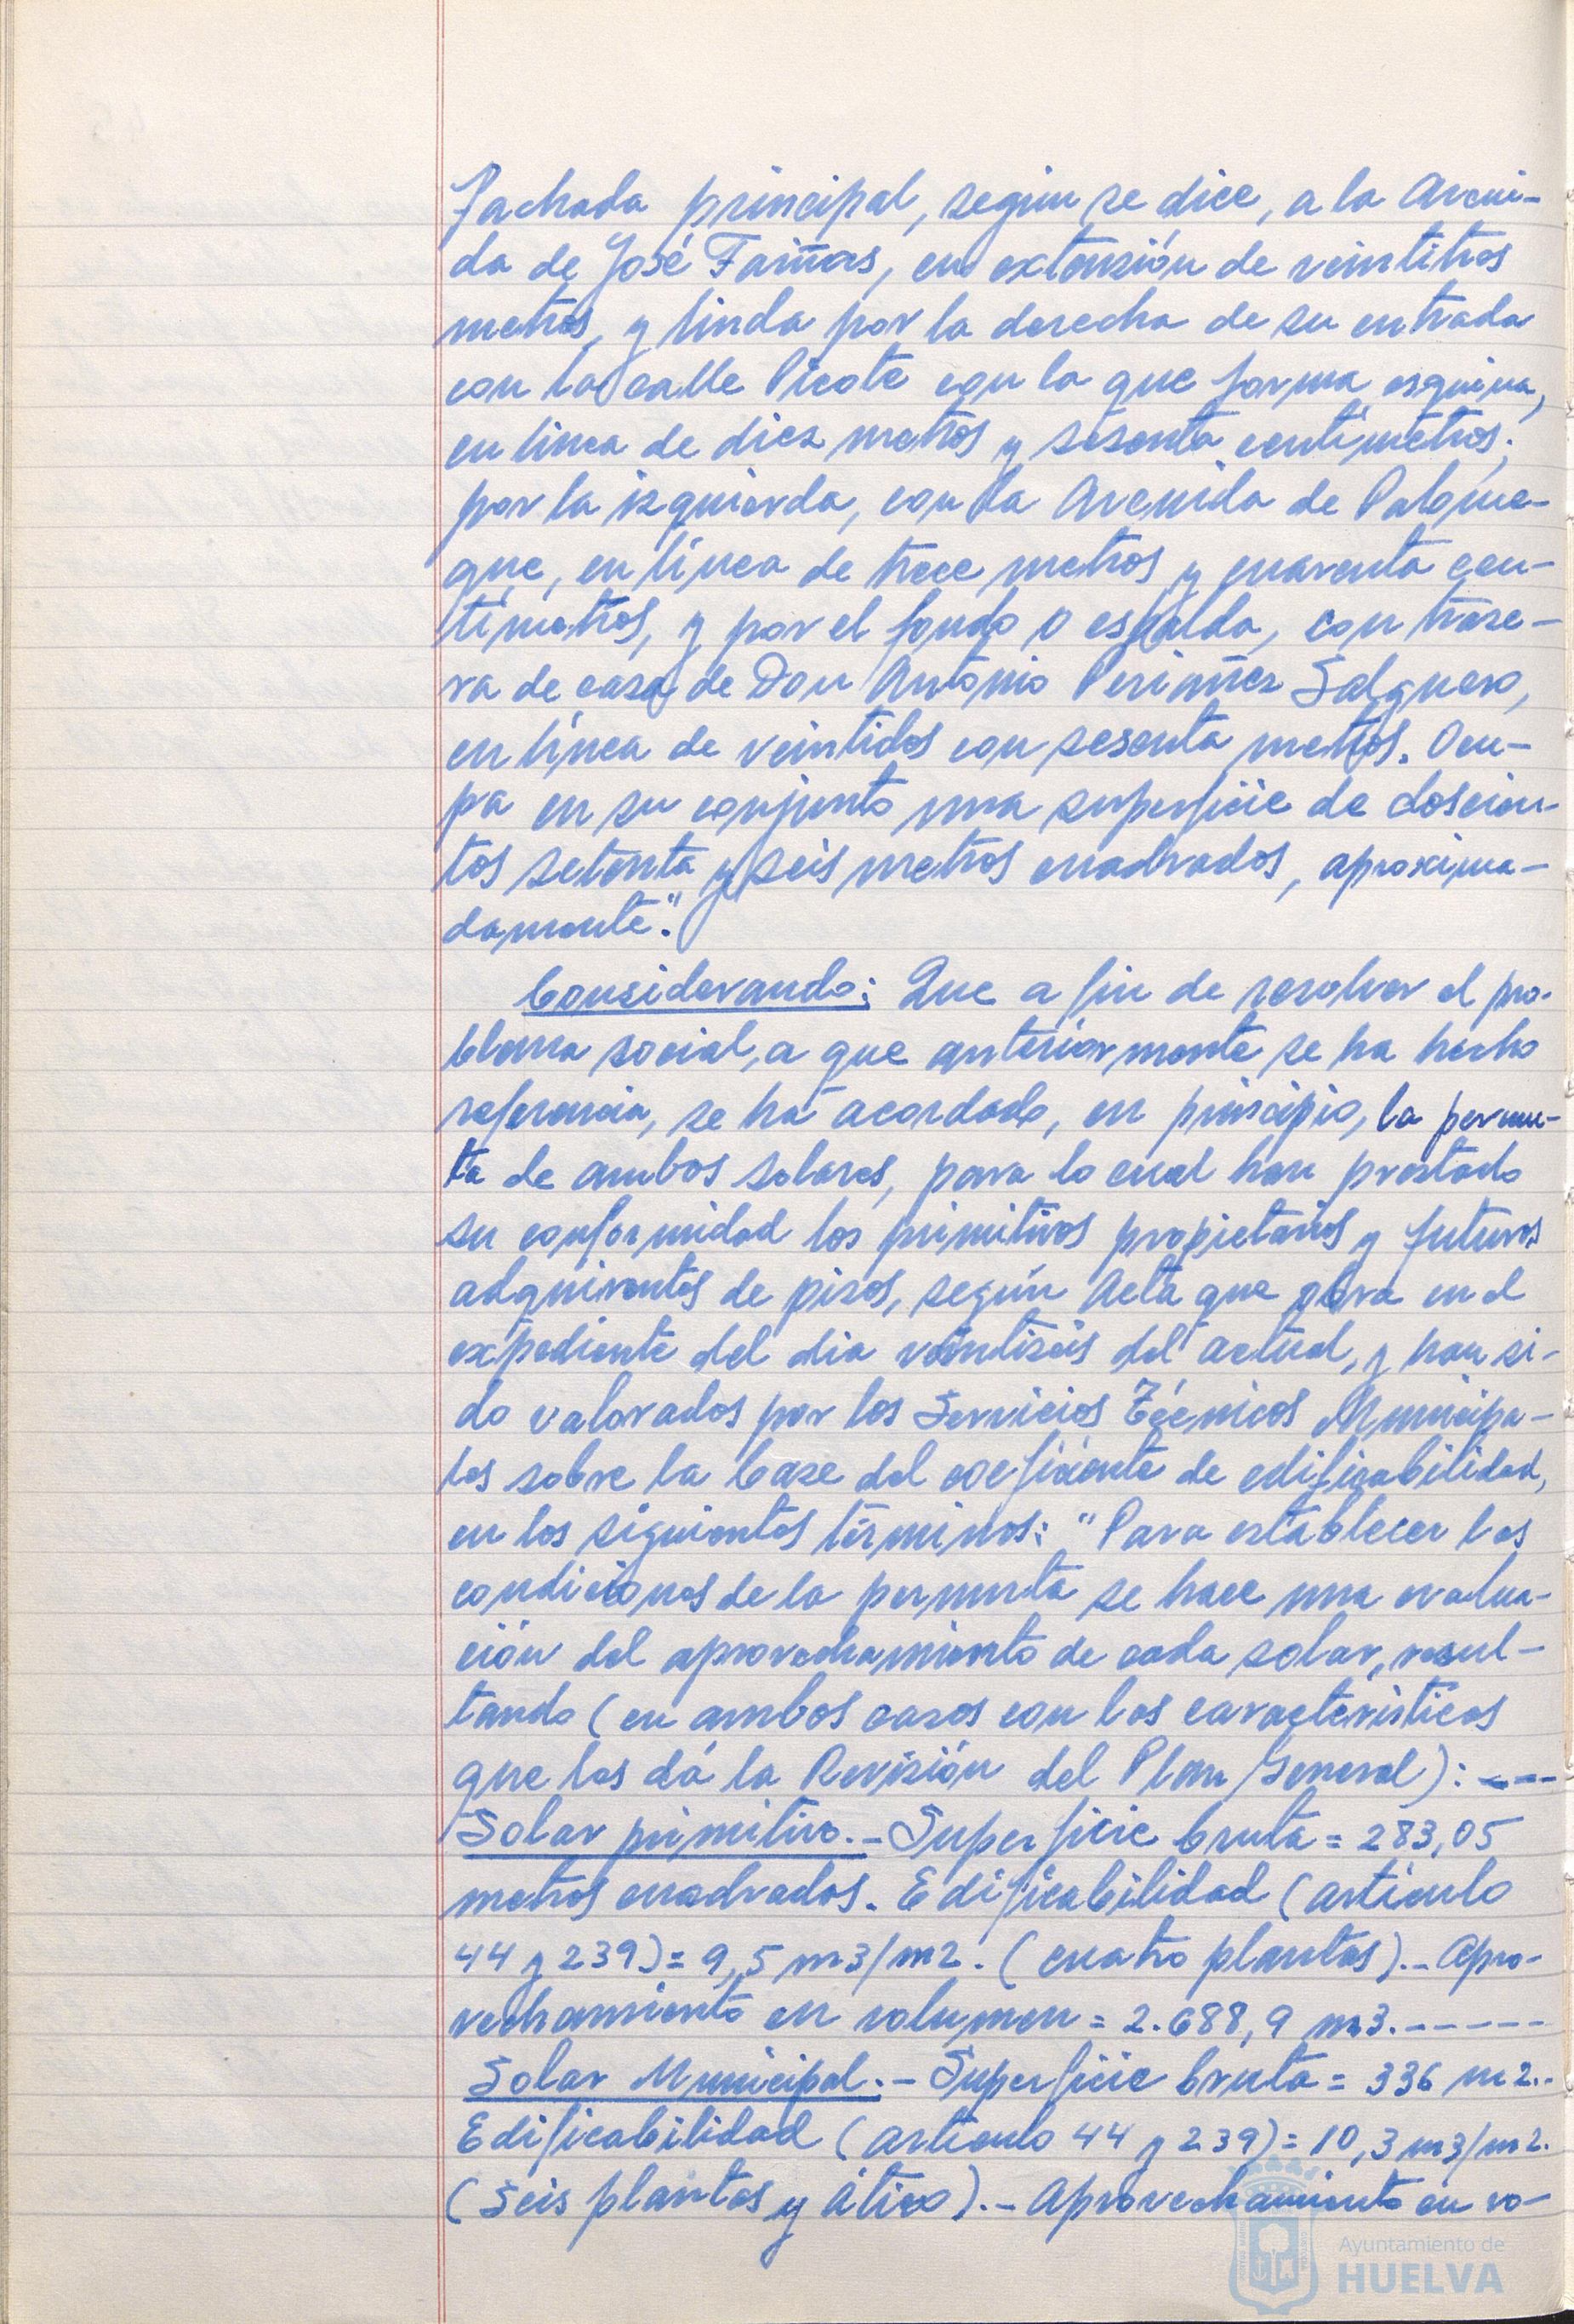 fachada principal, según se dice, a la Aveni-
da de José Fariñas, en extensión de veintitres
metros, y linda por la derecha de su entrada
con la calle Picote con la que forma esquina,
en linea de diez metros y sesenta centimetros;
por la izquierda, con la Avenida de Palome-
que, en línea de trece metros y cuarenta cen-
timetros, y por el fondo o espalda, con trase-
ra de casa de Don Antonio Periañez Salguero,
en línea de veintidos con sesenta metros. Ocu-
pa en su conjunto una superficie de doscien-
tos setenta y seis metros cuadrados, aproxima-
damente".
Considerando: Que a fin de resolver el pro-
blema social, a que anteriormente se ha hecho
referencia, se ha acordado, en principio, la permu-
ta de ambos solares, para lo cual han prestado
su conformidad los primitivos propietarios y futuros
adquirentes de pisos, según Acta que obra en el
expediente del dia veintiseis del actual, y han si-
do valorados por los Servicios Técnicos Municipa-
les sobre la base del coeficiente de edificabilidad,
en los siguientes términos: "Para establecer las
condiciones de la permuta se hace una evalua-
ción del aprovechamiento de cada solar, resul-
tando (en ambos casos con las características
que les dá la Revisión del Plan General): ---
Solar primitivo.- Superficie bruta = 283,05
metros cuadrados. Edificabilidad (artículo
44 y 239) = 9,5 m3/m2. (cuatro plantas).- Apro-
vechamiento en volumen = 2.688,9 m3.-----
Solar Municipal.- Superficie bruta = 336 m2.-
Edificabilidad (artículo 44 y 239) = 10,3 m3/m2.
(Seis plantas y ático).- Aprovechamiento en vo-
Ayuntamiento de
HUELVA